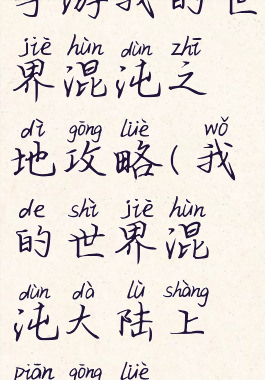 手游我的世
jiè hùn dùn zhī
界混沌之
dì gōng lüè wǒ
地攻略(我
de shì jiè hùn
的世界混
dùn dà lù shàng
沌大陆上
piān gōng lüè